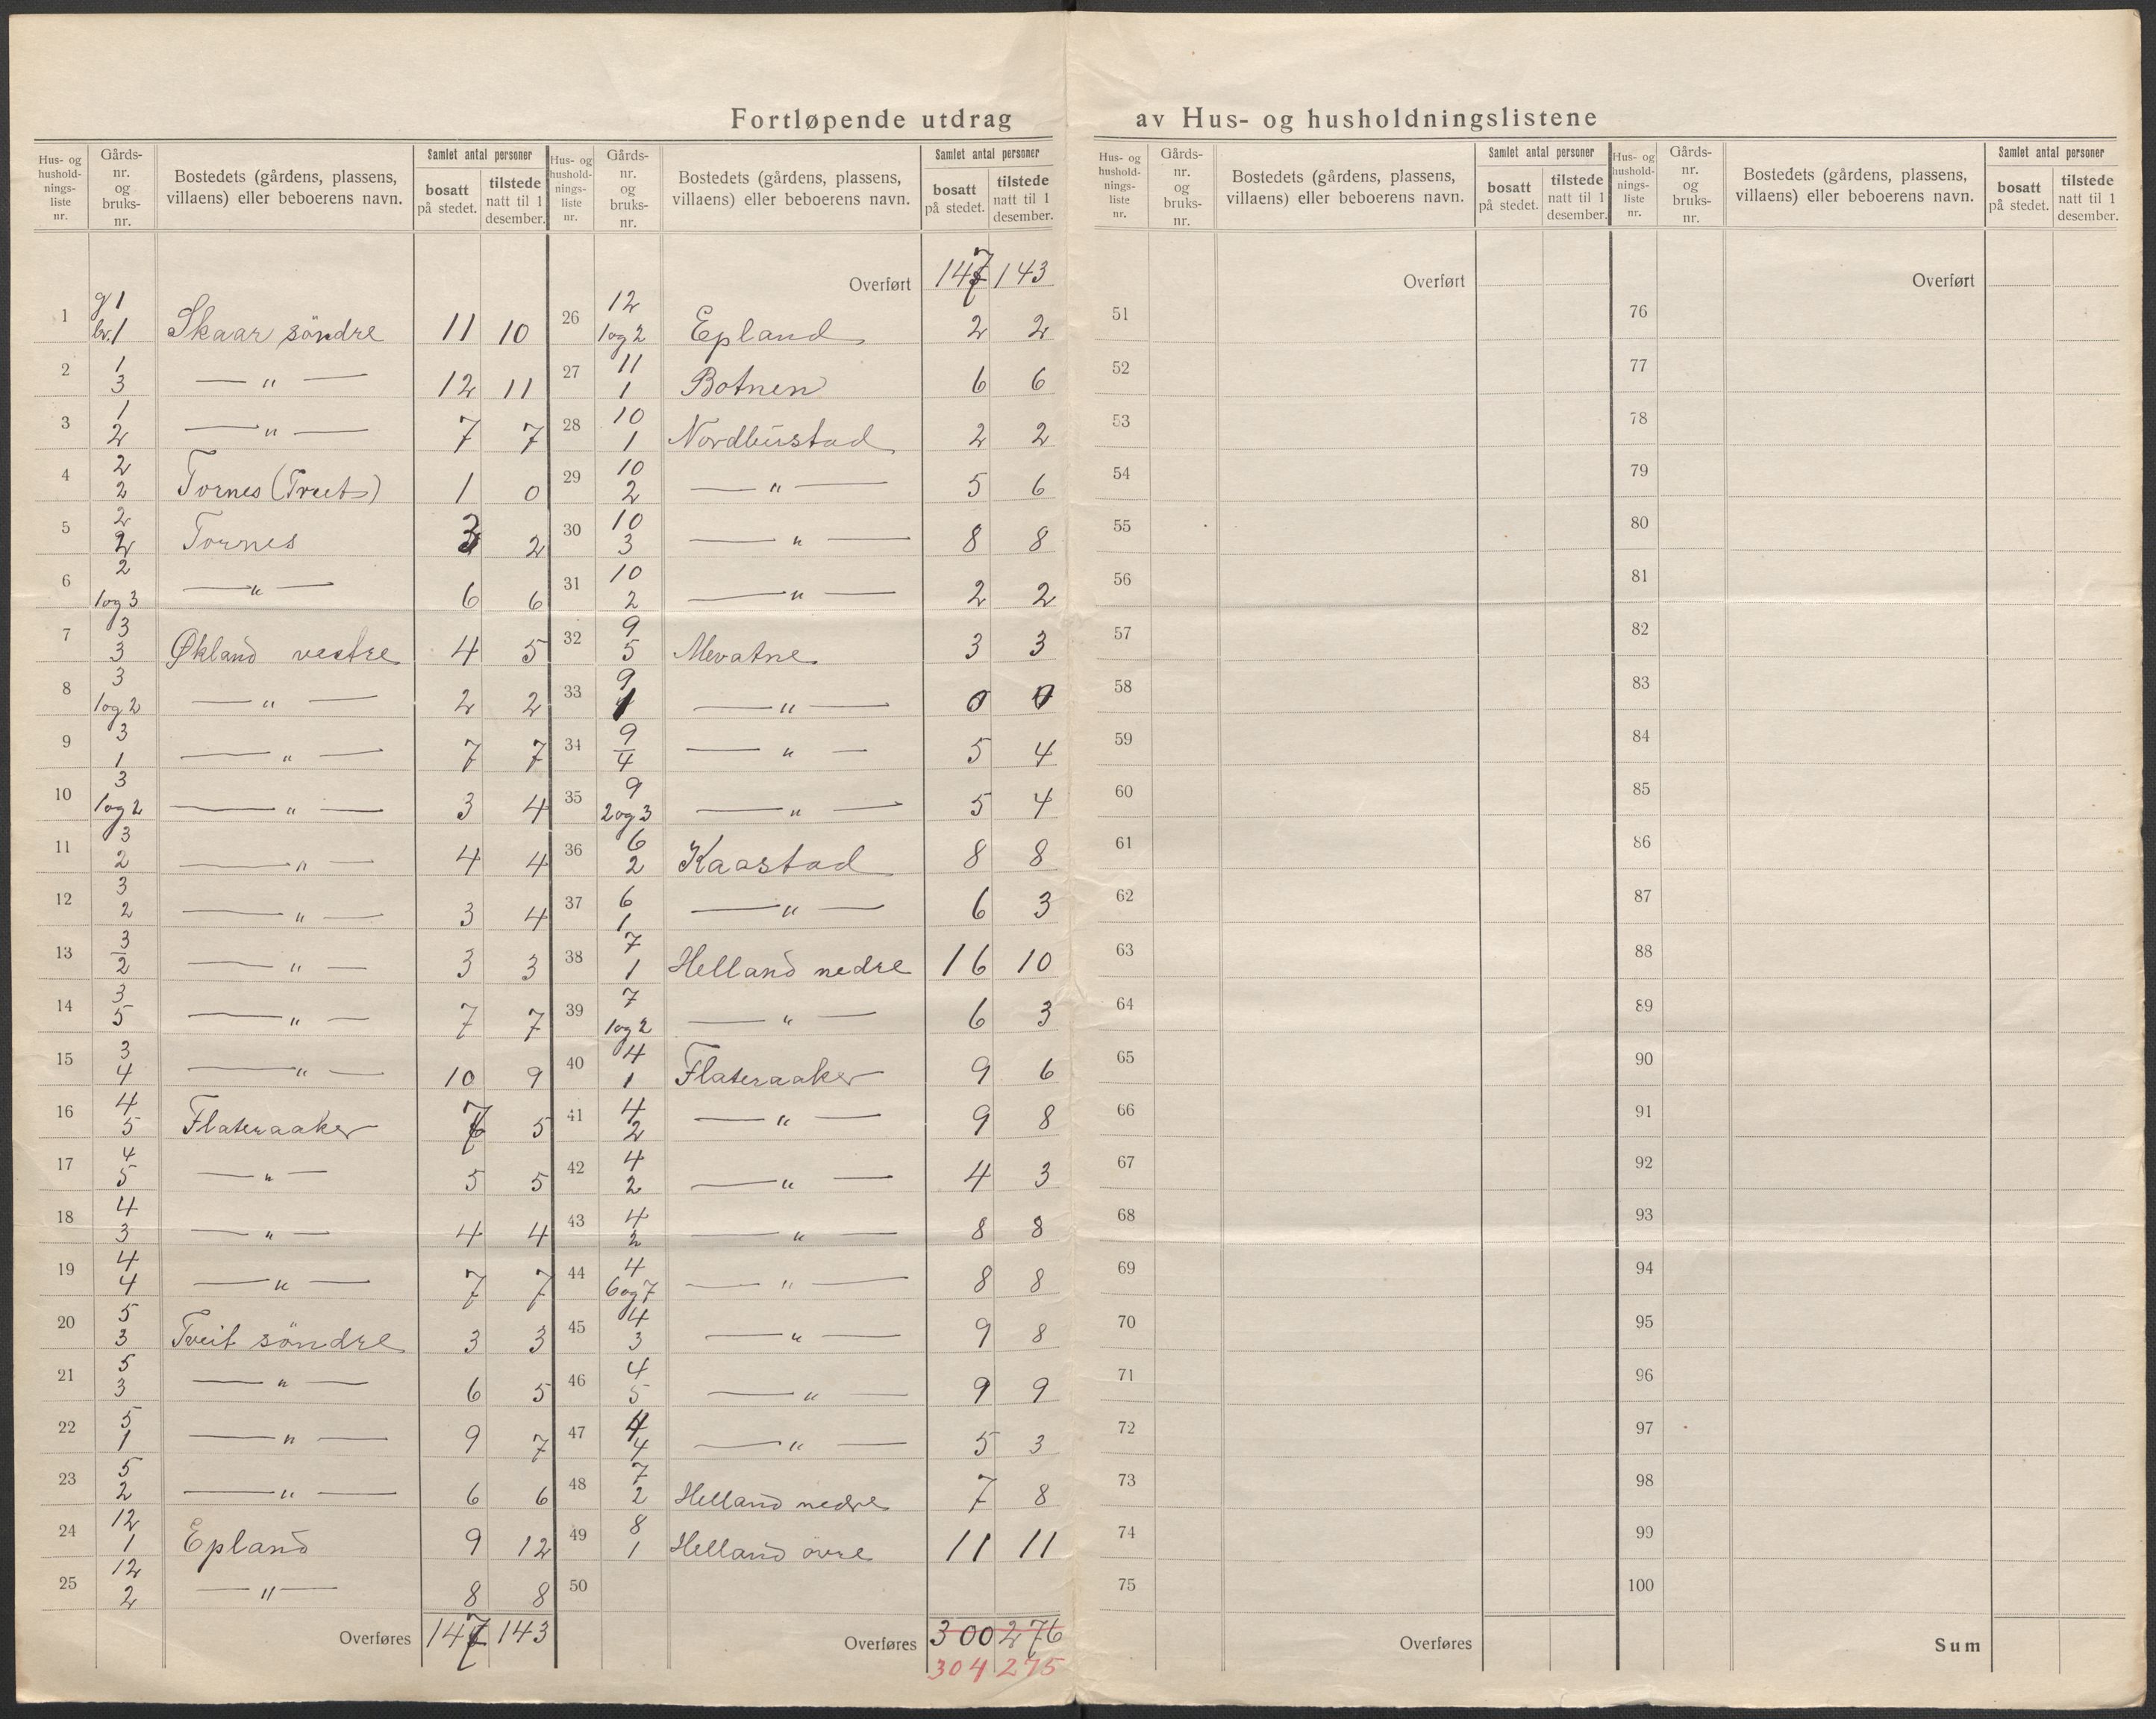 Fortløpende utdrag av Hus- og husholdningslistene
Hus- og hushold-nings-liste nr. Gårds-nr. og bruks-nr. Bostedets (gårdens, plassens, villaens) eller beboerens navn. Samlet antal personer bosatt på stedet. tilstede natt til 1 desember.
1 g 1 br. 1 Skaar söndre 11 10
2 1 3 — " — 12 11
3 1 2 — " — 7 7
4 2 2 Tornes (Treet) 1 0
5 2 2 Tornes 3 2
6 2 1 og 3 — " — 6 6
7 3 3 Økland vestre 4 5
8 3 1 og 2 — " — 2 2
9 3 1 — " — 7 7
10 3 1 og 2 — " — 3 4
11 3 2 — " — 4 4
12 3 2 — " — 3 4
13 3 2 — " — 3 3
14 3 5 — " — 7 7
15 3 4 — " — 10 9
16 4 5 Flateraaker 7 5
17 4 5 — " — 5 5
18 4 3 — " — 4 4
19 4 4 — " — 7 7
20 5 3 Tveit söndre 3 3
21 5 3 — " — 6 5
22 5 1 — " — 9 7
23 5 2 — " — 6 6
24 12 1 Epland 9 12
25 12 2 — " — 8 8
Overføres 147 143
Hus- og hushold-nings-liste nr. Gårds-nr. og bruks-nr. Bostedets (gårdens, plassens, villaens) eller beboerens navn. Samlet antal personer bosatt på stedet. tilstede natt til 1 desember.
Overført 147 143
26 12 1 og 2 Epland 2 2
27 11 1 Botnen 6 6
28 10 1 Nordhustad 2 2
29 10 2 — " — 5 6
30 10 3 — " — 8 8
31 10 2 — " — 2 2
32 9 5 Mevatne 3 3
33 9 1 — " — 0 0
34 9 4 — " — 5 4
35 9 2 og 3 — " — 5 4
36 6 2 Kaastad 8 8
37 6 1 — " — 6 3
38 7 1 Helland nedre 16 10
39 7 1 og 2 — " — 6 3
40 4 1 Flateraaker 9 6
41 4 2 — " — 9 8
42 4 2 — " — 4 3
43 4 2 — " — 8 8
44 4 6 og 7 — " — 8 8
45 4 3 — " — 9 8
46 4 5 — " — 9 9
47 4 4 — " — 5 3
48 7 2 Helland nedre 7 8
49 8 1 Helland övre 11 11
50
Overføres 300 276
304 275
Hus- og hushold-nings-liste nr. Gårds-nr. og bruks-nr. Bostedets (gårdens, plassens, villaens) eller beboerens navn. Samlet antal personer bosatt på stedet. tilstede natt til 1 desember.
Overført
51
52
53
54
55
56
57
58
59
60
61
62
63
64
65
66
67
68
69
70
71
72
73
74
75
Overføres
Hus- og hushold-nings-liste nr. Gårds-nr. og bruks-nr. Bostedets (gårdens, plassens, villaens) eller beboerens navn. Samlet antal personer bosatt på stedet. tilstede natt til 1 desember.
Overført
76
77
78
79
80
81
82
83
84
85
86
87
88
89
90
91
92
93
94
95
96
97
98
99
100
Sum